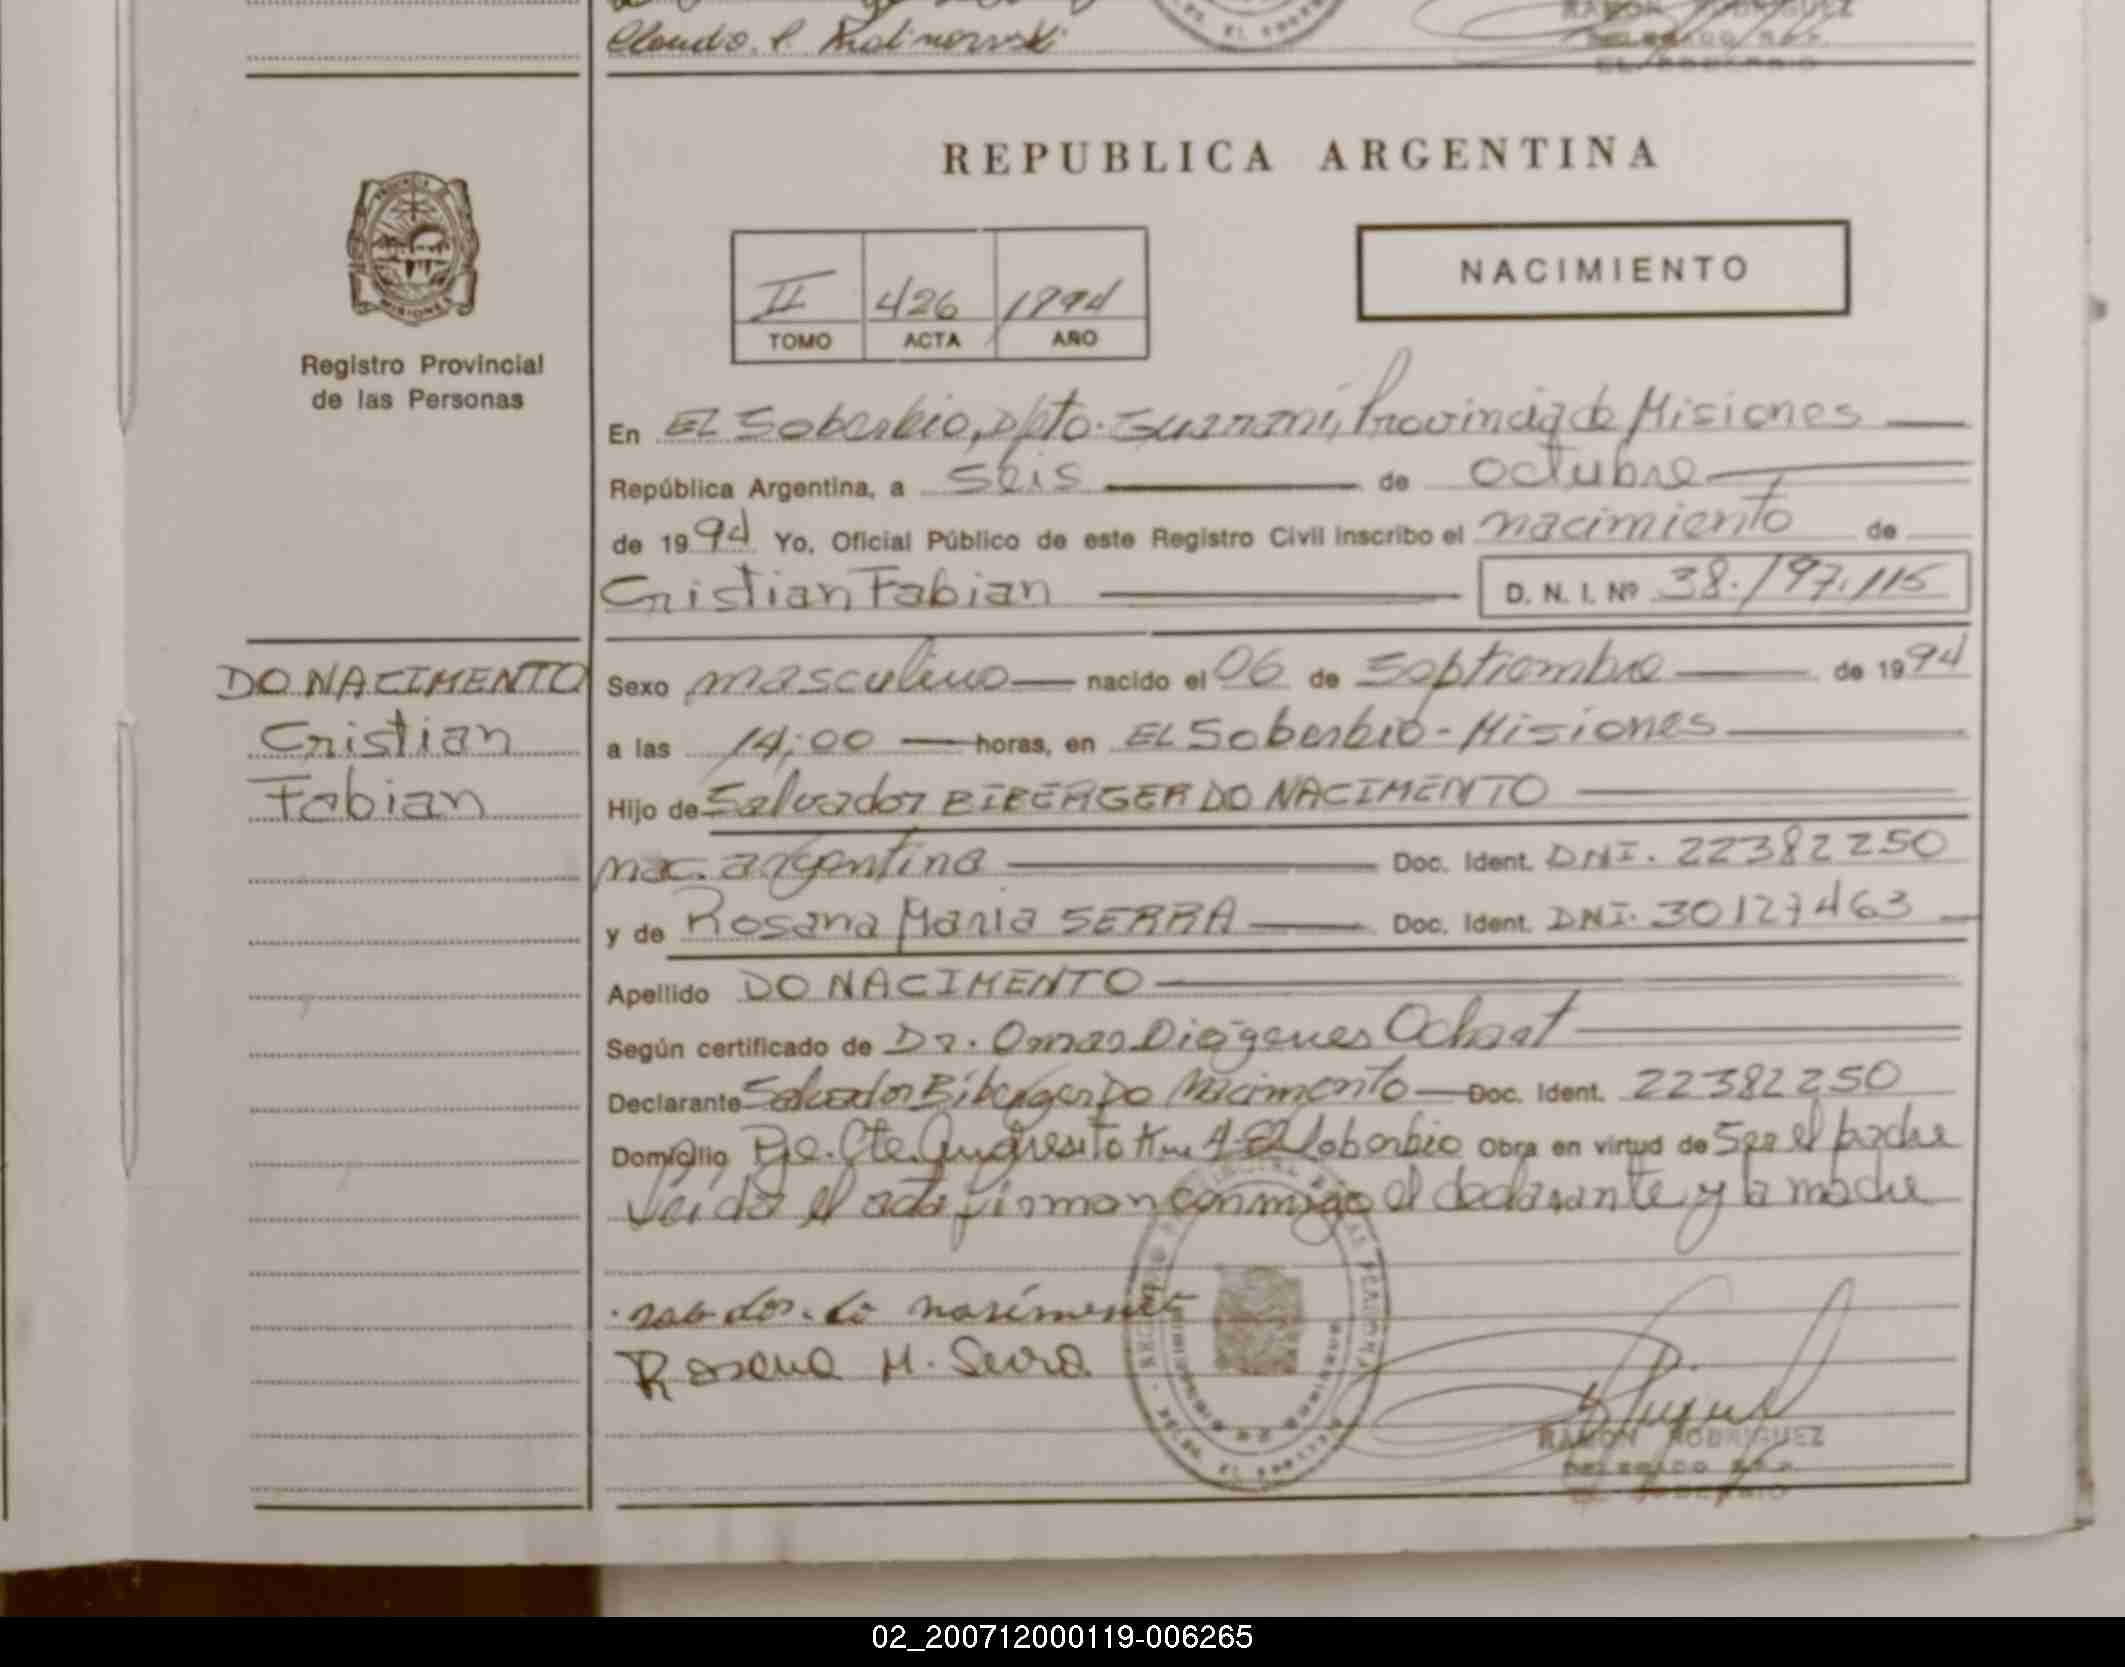 Claudio. R. Malinowski
RAMON RODRIGUEZ
DELEGADO R.P.P.
EL SOBERBIO
REPUBLICA ARGENTINA
NACIMIENTO
II 426 1994
TOMO ACTA AÑO
MISIONES
Registro Provincial
de las Personas
En EL Soberbio, Dpto. Guaraní, Provincia de Misiones
República Argentina, a seis de octubre
de 1994 Yo, Oficial Público de este Registro Civil inscribo el nacimiento de
Cristian Fabian D. N. I. Nº 38.197.115
DO NACIMENTO
Cristian
Fabian
Sexo masculino nacido el 06 de Septiembre de 1994
a las 14:00 horas, en EL Soberbio - Misiones
Hijo de Salvador BIBERGER DO NACIMENTO
nac. argentina Doc. Ident. DNI. 22382250
y de Rosana Maria SERRA Doc. Ident. DNI. 30127463
Apellido DO NACIMENTO
Según certificado de Dr. Omar Diógenes Ochoat
Declarante Salvador Biberger Do Nacimento Doc. Ident. 22382250
Domicilio Pje. Cte. Andresito Km 4 El Soberbio Obra en virtud de Ser el padre
Leida el acta firman conmigo el declarante y la madre
Rosana M. Serra
RAMON RODRIGUEZ
DELEGADO R.P.P.
EL SOBERBIO
02_200712000119-006265